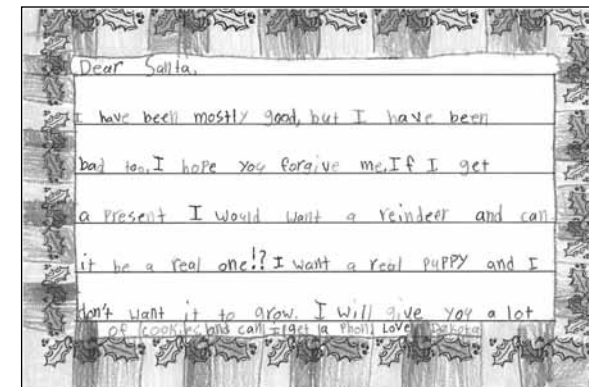 Dear Santa,
I have been mostly good, but I have been
bad too. I hope you forgive me. If I get
a present I would want a reindeer and can
it be a real one!? I want a real puppy and I
don't want it to grow. I will give you a lot
of cookies and can I get a phon Love Dakota